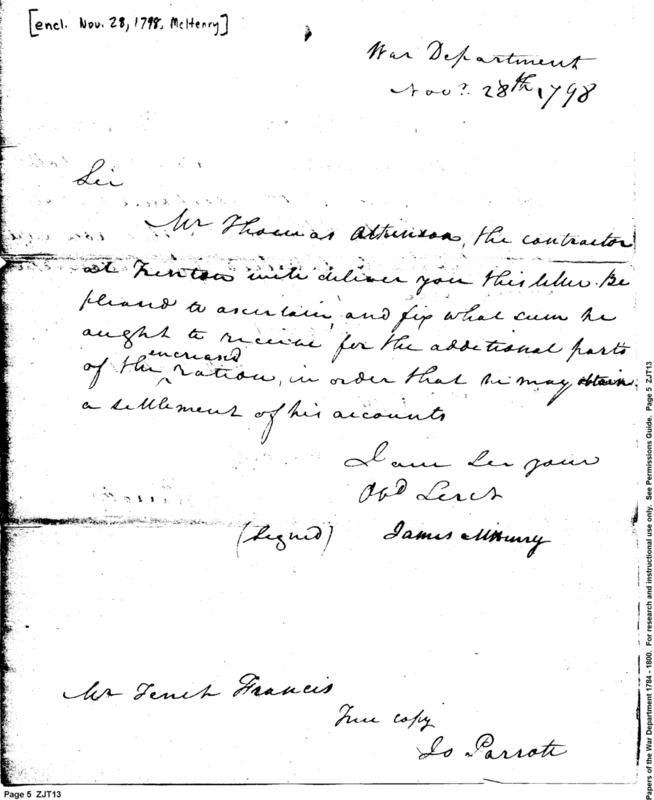 [encl. Nov. 28, 1798, McHenry]
War Department
Novr. 28th, 1798
Sir
Mr Thomas Atkinson, the contractor
at Trenton will deliver you this letter. Be
pleased to ascertain, and fix what sum he
aught to receive for the additional parts
of the increased ration, in order that he may obtain
a settlement of his accounts
I am Sir your
Obd Servt
(Signed) James McHenry
Mr Tench Francis
True copy
Jo Parrott
Page 5 ZJT13
Papers of the War Department 1784 - 1800. For research and instructional use only. See Permissions Guide. Page 5 ZJT13